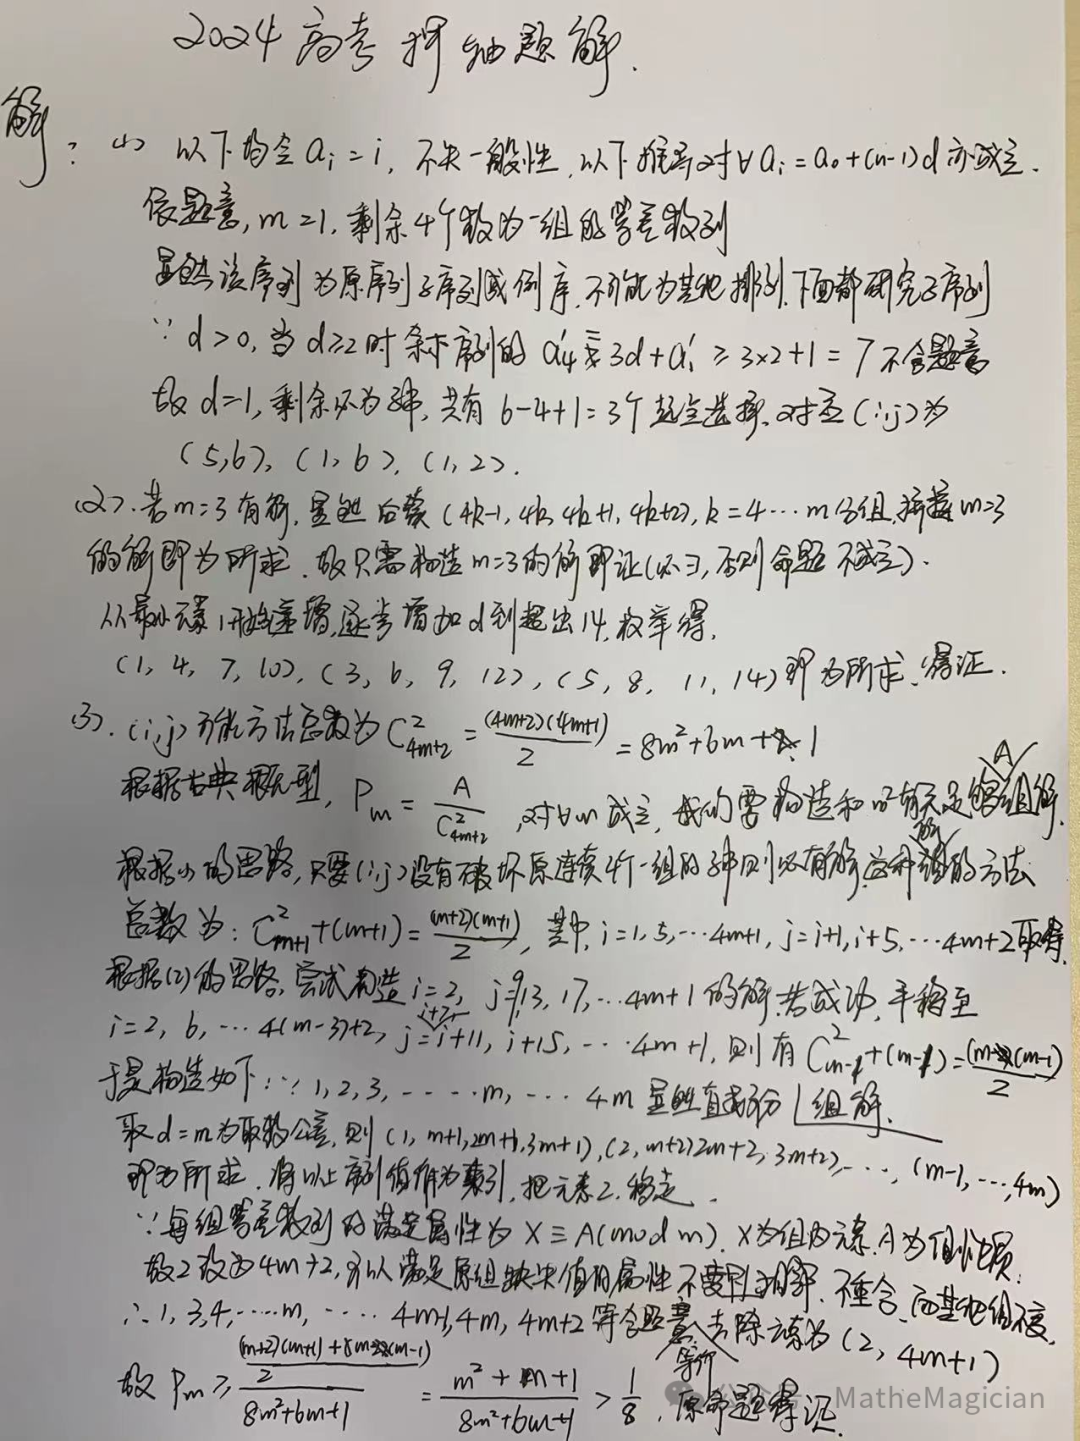 2024高考押轴题解.
解: (1) 以下均令 aᵢ = i, 不失一般性, 以下推导对∀aᵢ = a₀+(n-1)d 亦成立.
依题意, m=1, 剩余4个数为一组的等差数列
显然该序列为原序列子序列或倒序, 不可能为其他排列, 下面都研究子序列
∵ d>0, 当 d≥2时 序列的 a₄' 3d+a₁' ≥ 3×2+1 = 7 不合题意
故 d=1, 剩余 共有 6-4+1=3个 选择, 对应(i,j)为
(5,6), (1,6), (1,2).
(2). 若m=3有解, 显然后续(4k-1, 4k, 4k+1, 4k+2), k=4…m 分组, 拼接m=3
的解即为所求. 故只需构造m=3的解即证(必∃, 否则命题不成立).
从最小元素1开始递增, 逐步增加d到超出14, 枚举得,
(1, 4, 7, 10), (3, 6, 9, 12), (5, 8, 11, 14) 即为所求, 得证.
(3). (i,j)可能方法总数为 C²₄ₘ₊₂ = (4m+2)(4m+1)/2 = 8m²+6m+1
根据古典概型, Pₘ = A/C²₄ₘ₊₂, 对∀m成立, 我们需构造和 m² 有关 A 组解.
根据(1)的思路, 只要(i,j)没有破坏原连续4个一组的 则必有解, 这种 的方法
总数为: C²ₘ₊₁+(m+1) = (m+2)(m+1)/2, 其中, i=1,5,…4m+1, j=i+1, i+5, …4m+2取得.
根据(2)的思路, 尝试构造 i=2, j=9,13,17,…4m+1的解, 若成功, 平移至
i=2, 6, …4(m-3)+2, j=i+7, i+11, i+15, …4m+1, 则有 C²ₘ₋₁+(m-1)=
于是构造如下: ∵ 1,2,3,……m,…4m 显然 组解.
取d=m为 公差, 则(1, m+1, 2m+1, 3m+1), (2, m+2, 2m+2, 3m+2), …, (m-1, …, 4m)
即为所求. 将以上序列值作为索引, 把元素2.
∵ 每组等差数列的满足属性为 X ≡ A(mod m), X为组内元素, A为
故2改为4m+2, 可以满足原组缺失值的属性 不重合, 而其他组不变,
∴ 1, 3, 4, ……m, ……4m-1, 4m, 4m+2 符合题意, 去除元素为(2, 4m+1)
故 Pₘ ≥ = (m²+m+1)/(8m²+6m+1) > 1/8, 原命题得证.
MatheMagician